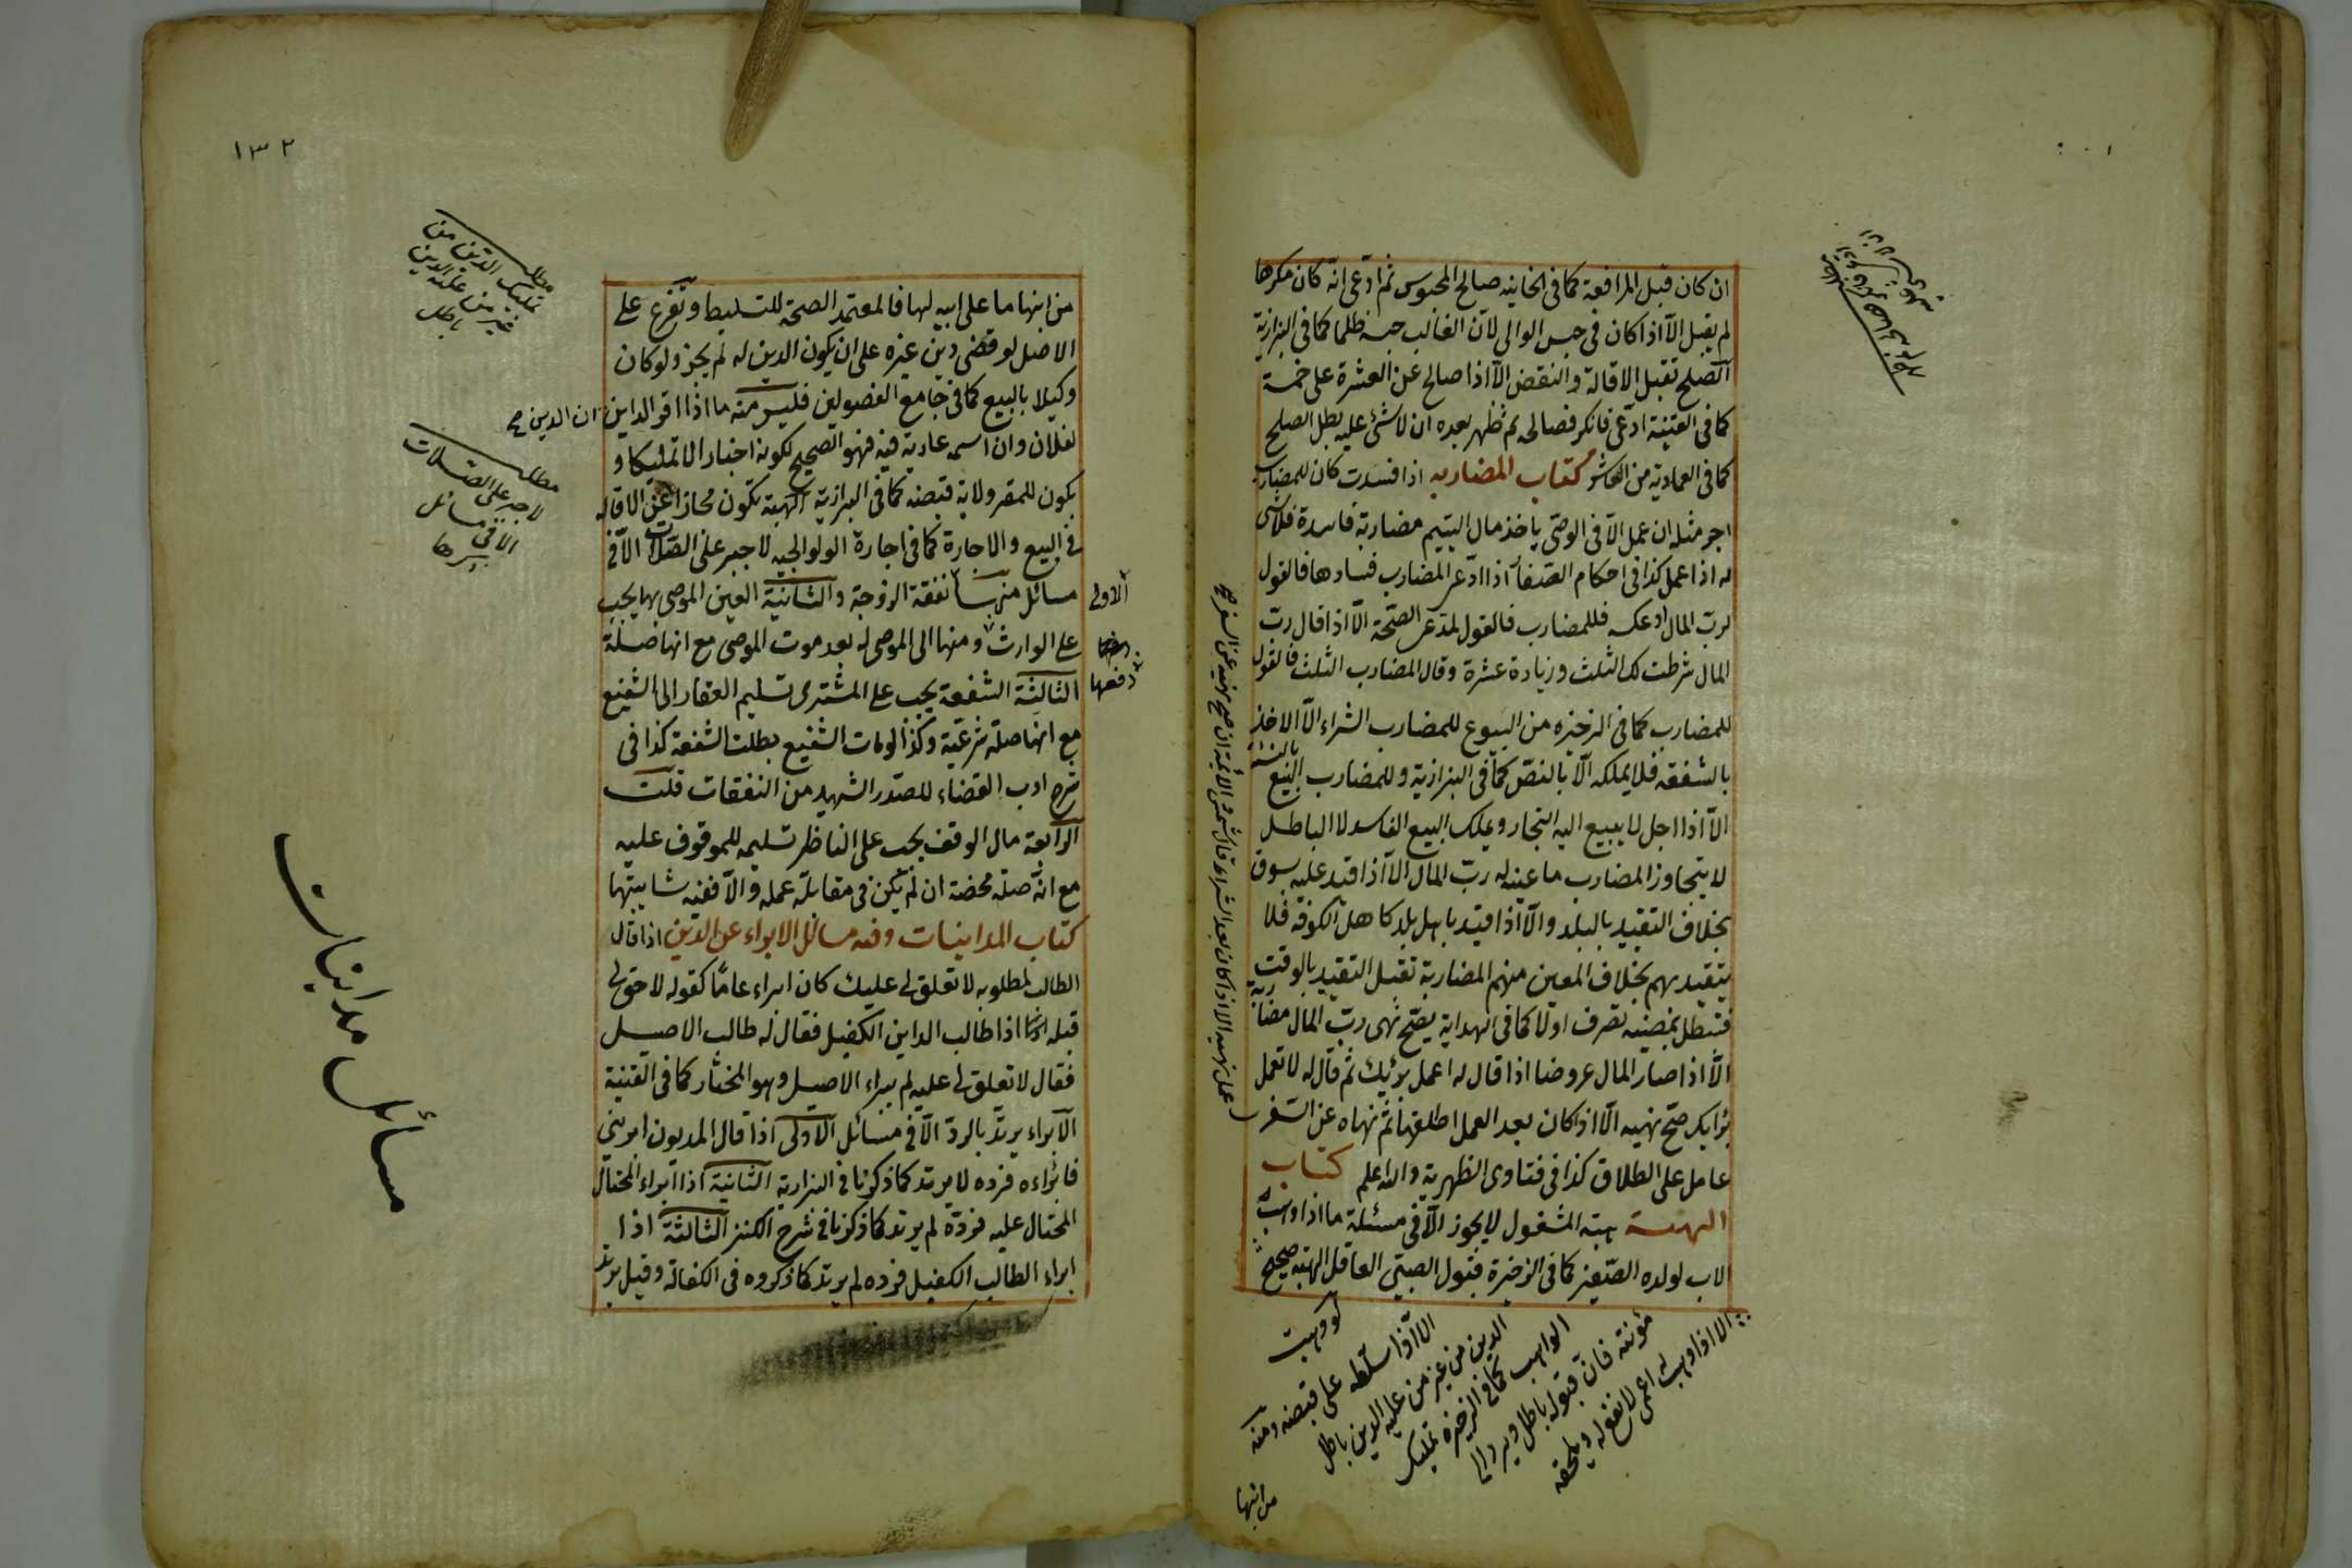 ان كان قبل المرافعة كما فى الخانيه صالح المحبوس ثم ادعى انه كان مكرها
لم يقبل الا اذا كان فى حبس الوالى لان الغالب حبسه ظلما كما فى البزازية
الصلح تقبل الاقالة والنقض الا اذا صالح عن العشرة على خمسة
كما فى القنية ادعى فانكر فصالحه ثم ظهر بعده ان لا شئ عليه بطل الصلح
كما فى العمادية من العاشر كتاب المضاربه اذا فسدت كان للمضارب
اجر مثله ان عمل الا فى الوصى ياخذ مال اليتيم مضاربة فاسدة فلا شئ
له اذا عمل كذا فى احكام الصغار اذا ادعى المضارب فسادها فالقول
لرب المال او عكسه فللمضارب فالقول لمدعى الصحة الا اذا قال رب
المال شرطت لك الثلث وزيادة عشرة وقال المضارب الثلث فالقول
للمضارب كما فى الذخيره من البيوع للمضارب الشراء الا الاخذ
بالشفعه فلا يملكه الا بالنص كما فى البزازية وللمضارب البيع بالنسئة
الا اذا اجل لا يبيع اليه التجار ويملك البيع الفاسد لا الباطل
لا يتجاوز المضارب ما عينه له رب المال الا اذا قيد عليه بسوق
بخلاف التقييد بالبلد والا اذا قيد باهل بلد كاهل الكوفة فلا
يتقيد بهم بخلاف المعين منهم المضاربة تقبل التقييد بالوقت
فتبطل بمضيه تصرف اولا كما فى الهداية يصح نهى رب المال مضاربه
الا اذا صار المال عروضا اذا قال له اعمل برئيك ثم قال له لا تعمل
برايك صح نهيه الا اذا كان بعد العمل اطلقها ثم نهاه عن السفر
عامل على الطلاق كذا فى فتاوى الظهرية والله اعلم كتاب
الهبة هبة المشغول لا يجوز الا فى مسئلة ما اذا وهب
الاب لولده الصغير كما فى الذخيرة قبول الصبى العاقل الهبة صحيح
الا اذا وهب له اعمى لا نفع له ويلحقه
مؤنته فان قبوله باطل ويرد الى
الواهب كما فى الذخيرة تمليك
الدين من غير من عليه الدين باطل
الا اذا سلطه على قبضه ومنه
لو وهبت
من ابنها
١٣٢
من ابنها ما على ابيه لها فالمعتمد الصحة للتسليط وتفرع على
الاصل لو قضى دين غيره على ان يكون الدين له لم يجز ولو كان
وكيلا بالبيع كما فى جامع الفصولين فليس منه ما اذا اقر الداين ان الدين صح
لفلان وان اسمه عادية فيه فهو الصحيح لكونه اخبارا لا تمليكا و
يكون للمقر ولاية قبضه كما فى البزازية الهبة تكون مجازا عن الاقاله
فى البيع والاجارة كما فى اجارة الولوالجيه لا جبر على الصلات الا فى
مسائل منها نفقة الزوجة والثانية العين الموصى بها يجب
الاولى
على الوارث ومنها الى الموصى له بعد موت الموصى مع انها صلة
دفعها
الثالثة الشفعة يجب على المشترى تسليم العقار الى الشفيع
مع انها صلة شرعية وكذا لو مات الشفيع بطلت الشفعة كذا فى
شرح ادب القضاء للصدر الشهيد من النفقات قلت
الرابعة مال الوقف يجب على الناظر تسليمه للموقوف عليه
مع انه صلة محضة ان لم يكن فى مقابلة عمله والا ففيه شايبتها
كتاب المداينات وفيه مسائل الابراء عن الدين اذا قال
الطالب لمطلوبه لا تعلق لى عليك كان ابراء عاما كقوله لا حق لى
قبله اذا طالب الداين الكفيل فقال له طالب الاصيل
فقال لا تعلق لى عليه لم يبراء الاصيل وهو المختار كما فى القنية
الابراء يرتد بالرد الا فى مسائل الاولى اذا قال المديون ابرينى
فابراءه فرده لا يرتد كما ذكرنا فى البزازية الثانية اذا ابراء المحتال
المحتال عليه فرده لم يرتد كما ذكرنا فى شرح الكنز الثالثة اذا
ابراء الطالب الكفيل فرده لم يرتد كما ذكروه فى الكفالة وقيل يرتد
مطلب
تمليك الدين من
غير من عليه الدين
باطل
مطلب
لا جبر على الصلات
الا فى مسائل
مسائل مداينات